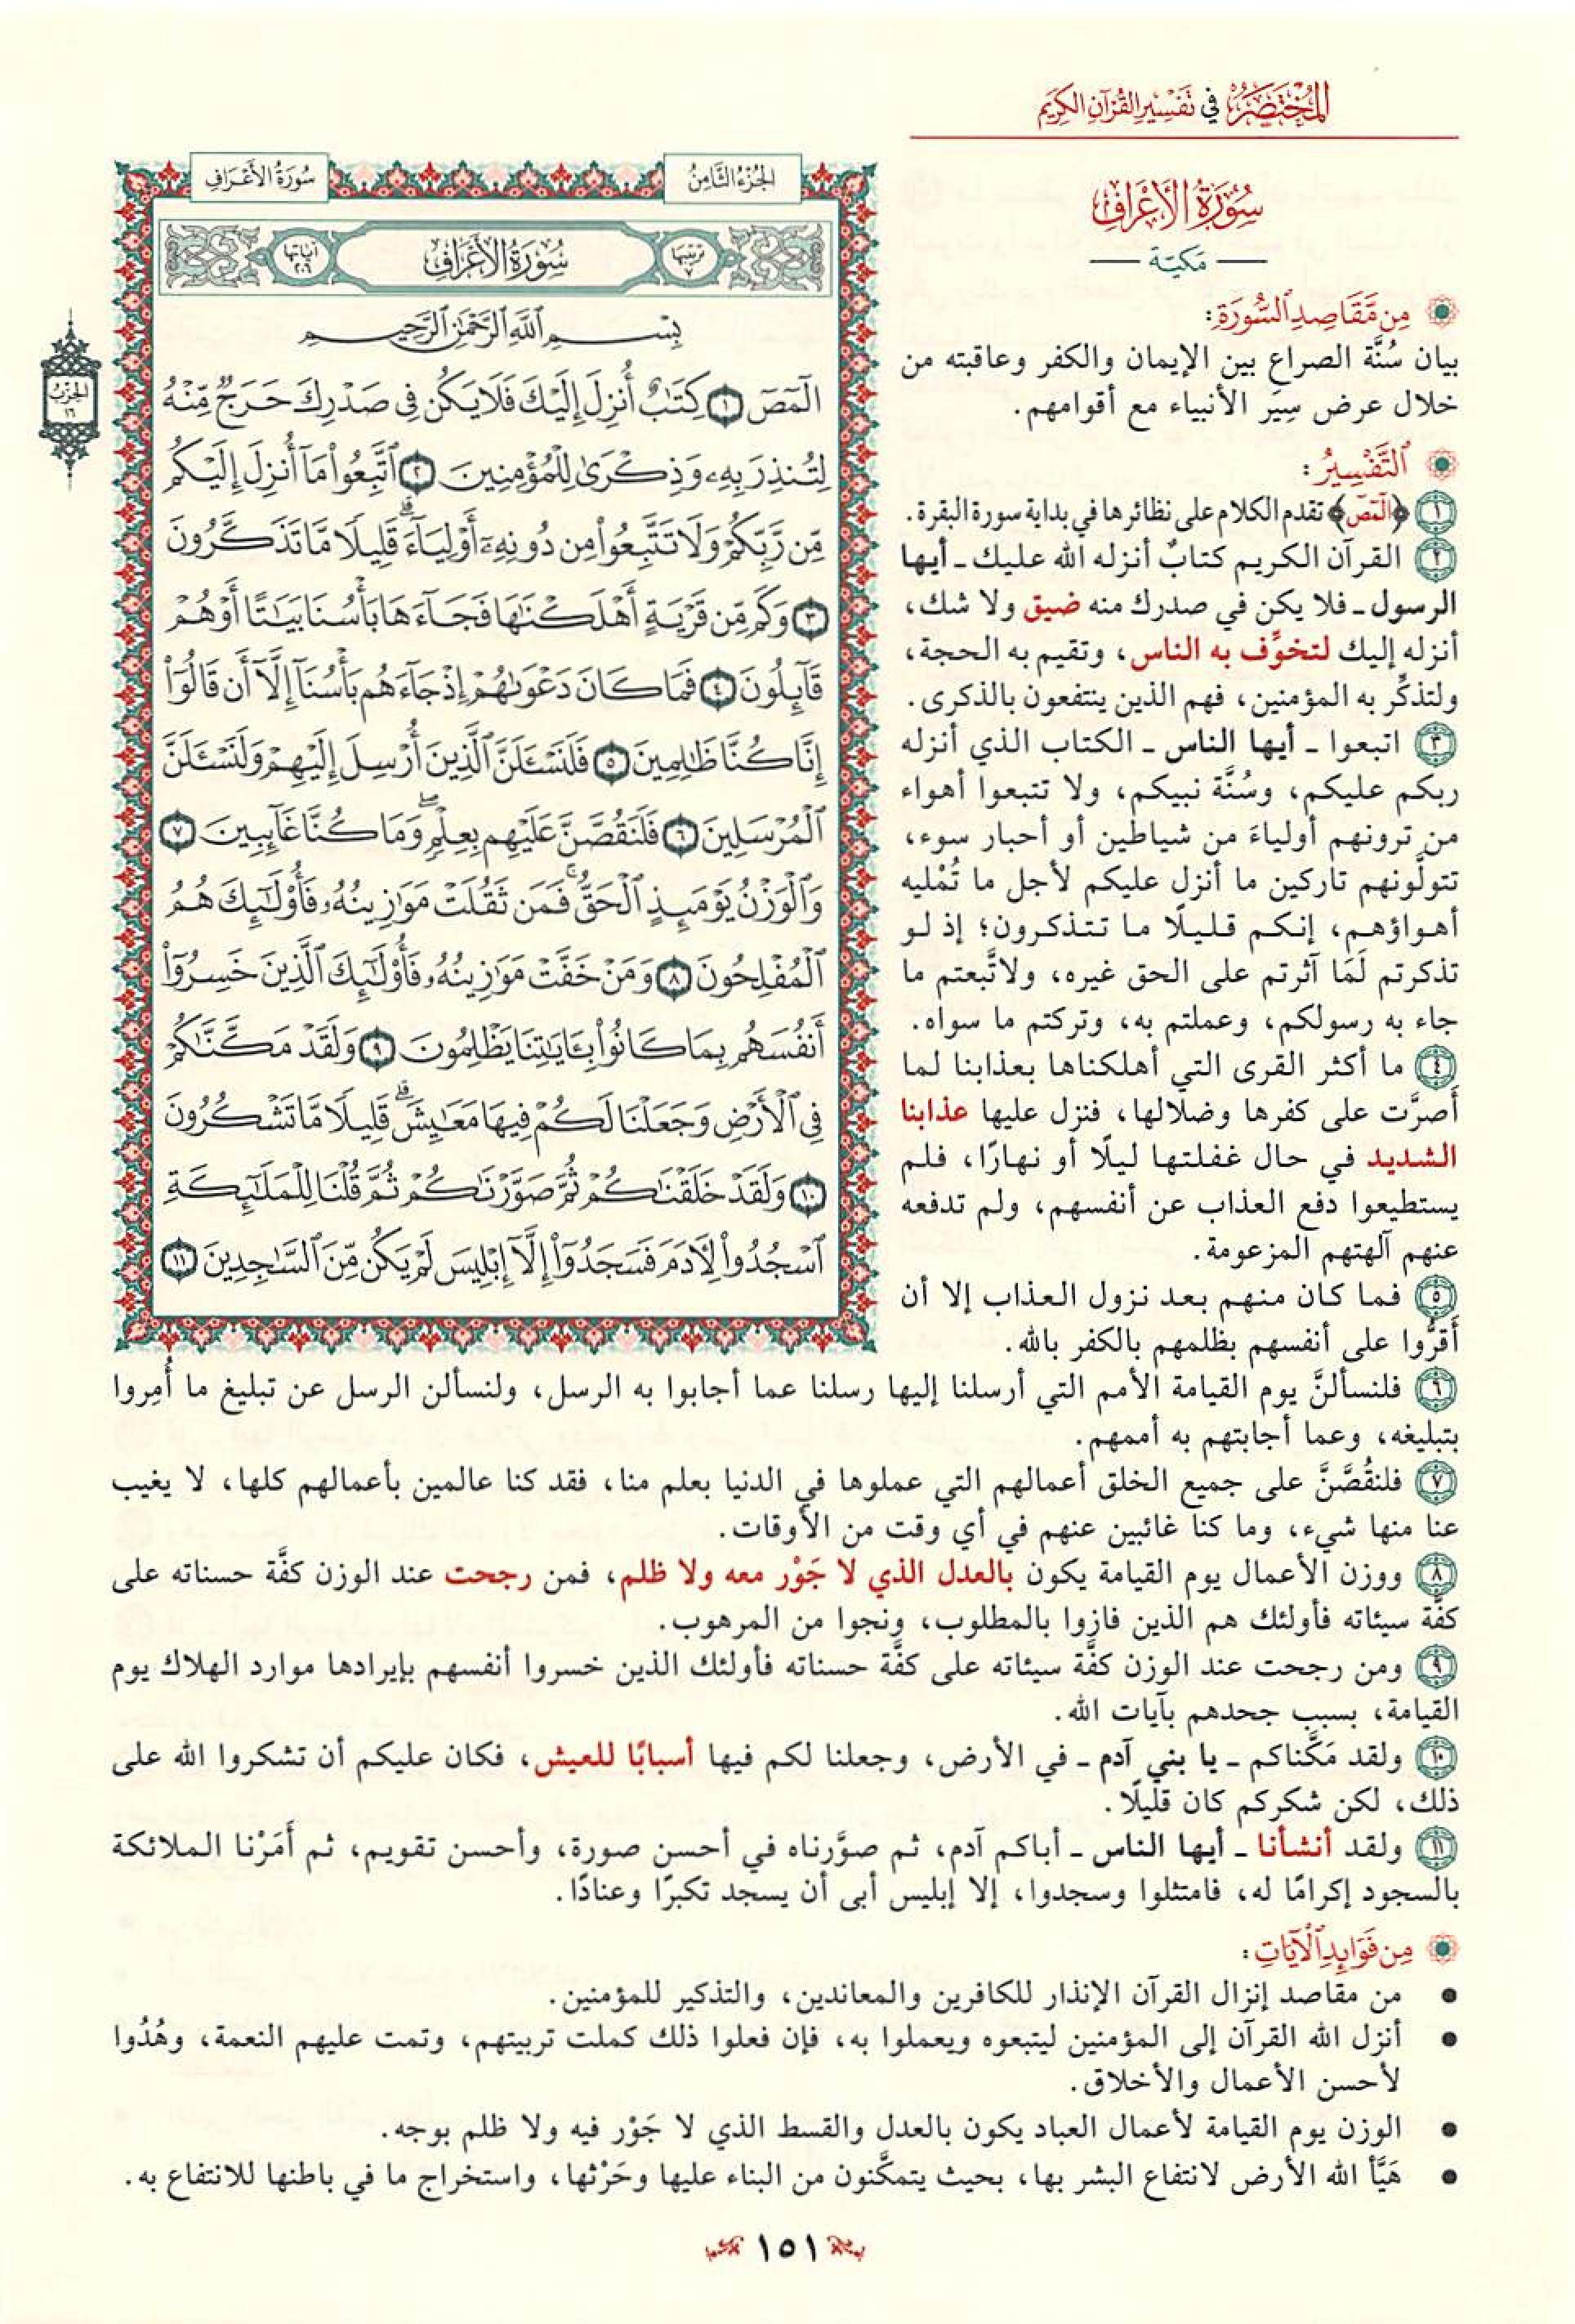 المختصر في تفسير القرآن الكريم
سُورَةُ الأَعْرَافِ
الجُزْءُ الثَّامِنُ
سُورَةُ الأَعْرَافِ
ترتيبها ٧
سُورَةُ الأَعْرَافِ
آياتها ٢٠٦
بِسْمِ ٱللَّهِ ٱلرَّحْمَٰنِ ٱلرَّحِيمِ
الحزب ١٦
الٓمٓصٓ ١ كِتَٰبٌ أُنزِلَ إِلَيْكَ فَلَا يَكُن فِى صَدْرِكَ حَرَجٌ مِّنْهُ
لِتُنذِرَ بِهِۦ وَذِكْرَىٰ لِلْمُؤْمِنِينَ ٢ ٱتَّبِعُوا۟ مَآ أُنزِلَ إِلَيْكُم
مِّن رَّبِّكُمْ وَلَا تَتَّبِعُوا۟ مِن دُونِهِۦٓ أَوْلِيَآءَ ۗ قَلِيلًا مَّا تَذَكَّرُونَ
٣ وَكَم مِّن قَرْيَةٍ أَهْلَكْنَٰهَا فَجَآءَهَا بَأْسُنَا بَيَٰتًا أَوْ هُمْ
قَآئِلُونَ ٤ فَمَا كَانَ دَعْوَىٰهُمْ إِذْ جَآءَهُم بَأْسُنَآ إِلَّآ أَن قَالُوٓا۟
إِنَّا كُنَّا ظَٰلِمِينَ ٥ فَلَنَسْـَٔلَنَّ ٱلَّذِينَ أُرْسِلَ إِلَيْهِمْ وَلَنَسْـَٔلَنَّ
ٱلْمُرْسَلِينَ ٦ فَلَنَقُصَّنَّ عَلَيْهِم بِعِلْمٍ ۖ وَمَا كُنَّا غَآئِبِينَ ٧
وَٱلْوَزْنُ يَوْمَئِذٍ ٱلْحَقُّ ۚ فَمَن ثَقُلَتْ مَوَٰزِينُهُۥ فَأُو۟لَٰٓئِكَ هُمُ
ٱلْمُفْلِحُونَ ٨ وَمَنْ خَفَّتْ مَوَٰزِينُهُۥ فَأُو۟لَٰٓئِكَ ٱلَّذِينَ خَسِرُوٓا۟
أَنفُسَهُم بِمَا كَانُوا۟ بِـَٔايَٰتِنَا يَظْلِمُونَ ٩ وَلَقَدْ مَكَّنَّٰكُمْ
فِى ٱلْأَرْضِ وَجَعَلْنَا لَكُمْ فِيهَا مَعَٰيِشَ ۗ قَلِيلًا مَّا تَشْكُرُونَ
١٠ وَلَقَدْ خَلَقْنَٰكُمْ ثُمَّ صَوَّرْنَٰكُمْ ثُمَّ قُلْنَا لِلْمَلَٰٓئِكَةِ
ٱسْجُدُوا۟ لِـَٔادَمَ فَسَجَدُوٓا۟ إِلَّآ إِبْلِيسَ لَمْ يَكُن مِّنَ ٱلسَّٰجِدِينَ ١١
— مَكيّة —
مِن مَّقَاصِدِ ٱلسُّورَةِ:
بيان سُنَّة الصراع بين الإيمان والكفر وعاقبته من
خلال عرض سِيَر الأنبياء مع أقوامهم.
ٱلتَّفْسِيرُ:
١ ﴿الٓمٓصٓ﴾ تقدم الكلام على نظائرها في بداية سورة البقرة.
٢ القرآن الكريم كتابٌ أنزله الله عليك ـ أيها
الرسول ـ فلا يكن في صدرك منه ضيق ولا شك،
أنزله إليك لتخوِّف به الناس، وتقيم به الحجة،
ولتذكِّر به المؤمنين، فهم الذين ينتفعون بالذكرى.
٣ اتبعوا ـ أيها الناس ـ الكتاب الذي أنزله
ربكم عليكم، وسُنَّة نبيكم، ولا تتبعوا أهواء
من ترونهم أولياءَ من شياطين أو أحبار سوء،
تتولَّونهم تاركين ما أنزل عليكم لأجل ما تُمْليه
أهواؤهم، إنكم قليلًا ما تتذكرون؛ إذ لو
تذكرتم لَمَا آثرتم على الحق غيره، ولاتَّبعتم ما
جاء به رسولكم، وعملتم به، وتركتم ما سواه.
٤ ما أكثر القرى التي أهلكناها بعذابنا لما
أصرَّت على كفرها وضلالها، فنزل عليها عذابنا
الشديد في حال غفلتها ليلًا أو نهارًا، فلم
يستطيعوا دفع العذاب عن أنفسهم، ولم تدفعه
عنهم آلهتهم المزعومة.
٥ فما كان منهم بعد نزول العذاب إلا أن
أقرُّوا على أنفسهم بظلمهم بالكفر بالله.
٦ فلنسألنَّ يوم القيامة الأمم التي أرسلنا إليها رسلنا عما أجابوا به الرسل، ولنسألن الرسل عن تبليغ ما أُمِروا
بتبليغه، وعما أجابتهم به أممهم.
٧ فلنقُصَّنَّ على جميع الخلق أعمالهم التي عملوها في الدنيا بعلم منا، فقد كنا عالمين بأعمالهم كلها، لا يغيب
عنا منها شيء، وما كنا غائبين عنهم في أي وقت من الأوقات.
٨ ووزن الأعمال يوم القيامة يكون بالعدل الذي لا جَوْر معه ولا ظلم، فمن رجحت عند الوزن كفَّة حسناته على
كفَّة سيئاته فأولئك هم الذين فازوا بالمطلوب، ونجوا من المرهوب.
٩ ومن رجحت عند الوزن كفَّة سيئاته على كفَّة حسناته فأولئك الذين خسروا أنفسهم بإيرادها موارد الهلاك يوم
القيامة، بسبب جحدهم بآيات الله.
١٠ ولقد مَكَّناكم ـ يا بني آدم ـ في الأرض، وجعلنا لكم فيها أسبابًا للعيش، فكان عليكم أن تشكروا الله على
ذلك، لكن شكركم كان قليلًا.
١١ ولقد أنشأنا ـ أيها الناس ـ أباكم آدم، ثم صوَّرناه في أحسن صورة، وأحسن تقويم، ثم أَمَرْنا الملائكة
بالسجود إكرامًا له، فامتثلوا وسجدوا، إلا إبليس أبى أن يسجد تكبرًا وعنادًا.
مِن فَوَائِدِ ٱلْآيَاتِ:
• من مقاصد إنزال القرآن الإنذار للكافرين والمعاندين، والتذكير للمؤمنين.
• أنزل الله القرآن إلى المؤمنين ليتبعوه ويعملوا به، فإن فعلوا ذلك كملت تربيتهم، وتمت عليهم النعمة، وهُدُوا
لأحسن الأعمال والأخلاق.
• الوزن يوم القيامة لأعمال العباد يكون بالعدل والقسط الذي لا جَوْر فيه ولا ظلم بوجه.
• هَيَّأ الله الأرض لانتفاع البشر بها، بحيث يتمكَّنون من البناء عليها وحَرْثها، واستخراج ما في باطنها للانتفاع به.
١٥١